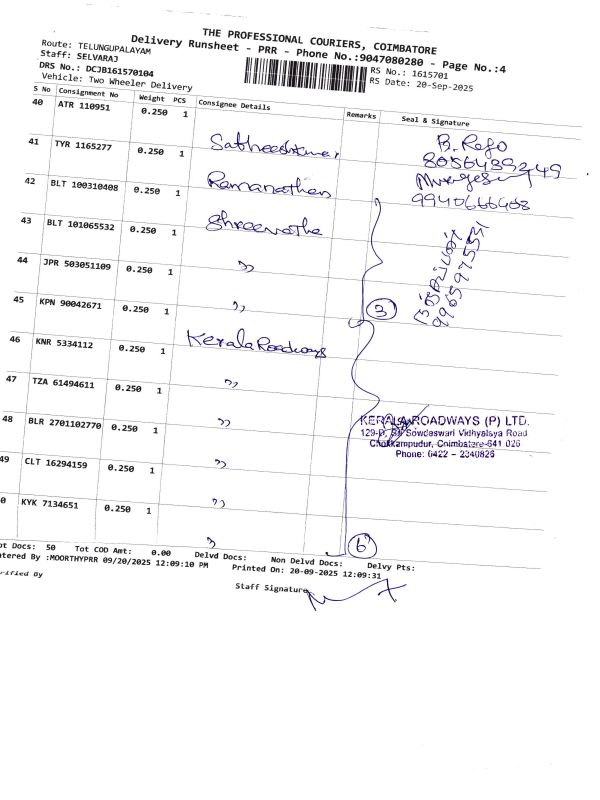 THE PROFESSIONAL COURIERS, COIMBATORE
Delivery Runsheet - PRR - Phone No.:9047080280 - Page No.:4
Route: TELUNGUPALAYAM
Staff: SELVARAJ
RS No.: 1615701
DRS No.: DCJB161570104
RS Date: 20-Sep-2025
Vehicle: Two Wheeler Delivery
S No Consignment No Weight PCS Consignee Details Remarks Seal & Signature
40 ATR 110951 0.250 1
Satheeshkumar
B. Rejo
8056439249
41 TYR 1165277 0.250 1
Ramanathan
Murugesan
9940666468
42 BLT 100310408 0.250 1
Shreevatha
43 BLT 101065532 0.250 1
"
9965975551
44 JPR 503051109 0.250 1
"
3
45 KPN 90042671 0.250 1
Kerala Roadways
46 KNR 5334112 0.250 1
"
47 TZA 61494611 0.250 1
"
KERALA ROADWAYS (P) LTD.
129-D, Sowdeswari Vidhyalaya Road
Chokkampudur, Coimbatore-641 026
Phone: 0422 – 2340826
48 BLR 2701102770 0.250 1
"
49 CLT 16294159 0.250 1
"
0 KYK 7134651 0.250 1
"
6
ot Docs: 50 Tot COD Amt: 0.00 Delvd Docs: Non Delvd Docs: Delvy Pts:
ntered By :MOORTHYPRR 09/20/2025 12:09:10 PM Printed On: 20-09-2025 12:09:31
rified By
Staff Signature